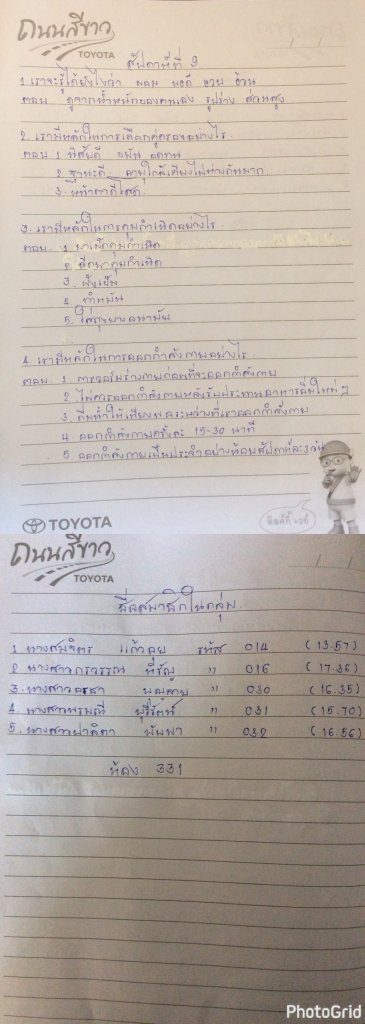 ถนนสีขาว
TOYOTA
สัปดาห์ที่ 9
1. เราจะรู้ได้ยังไงว่า ผอม พอดี อวบ อ้วน
ตอบ ดูจากน้ำหนักของตนเอง รูปร่าง ส่วนสูง
2. เรามีหลักในการเลือกคู่ครองอย่างไร.
ตอบ 1 นิสัยดี ขยัน อดทน
2 ฐานะดี อายุใกล้เคียงไม่ห่างกันมาก
3. หน้าตาดีโสด
3. เรามีหลักในการคุมกำเนิดอย่างไร.
ตอบ. 1 ยาเม็ดคุมกำเนิด
2 ฉีดยาคุมกำเนิด
3 ฝังเข็ม
4 ทำหมัน
5. ใส่ถุงยางอนามัย
4. เรามีหลักในการออกกำลังกายอย่างไร.
ตอบ. 1 การวอร์มร่างกายก่อนที่จะออกกำลังกาย
2 ไม่ควรออกกำลังกายหลังรับประทานอาหารอิ่มใหม่ๆ
3 ดื่มน้ำให้เพียงพอระหว่างที่เราออกกำลังกาย
4 ออกกำลังกายครั้งละ 15-30 นาที
5 ออกกำลังกายเป็นประจำอย่างน้อยสัปดาห์ละ 3 วัน
TOYOTA
ถนนสีขาว
TOYOTA
/ /
ชื่อสมาชิกในกลุ่ม
1 นางสมจิตร แก้วลอย รหัส 014 (13.57)
2 นางสาวกรวรรณ " 016 (17.36)
3. นางสาว " 030 (16.35)
4. นางสาว บุรีรัตน์ " 031 (15.70)
5. นางสาวปาลิตา " 032 (16.56)
ห้อง 331
PhotoGrid